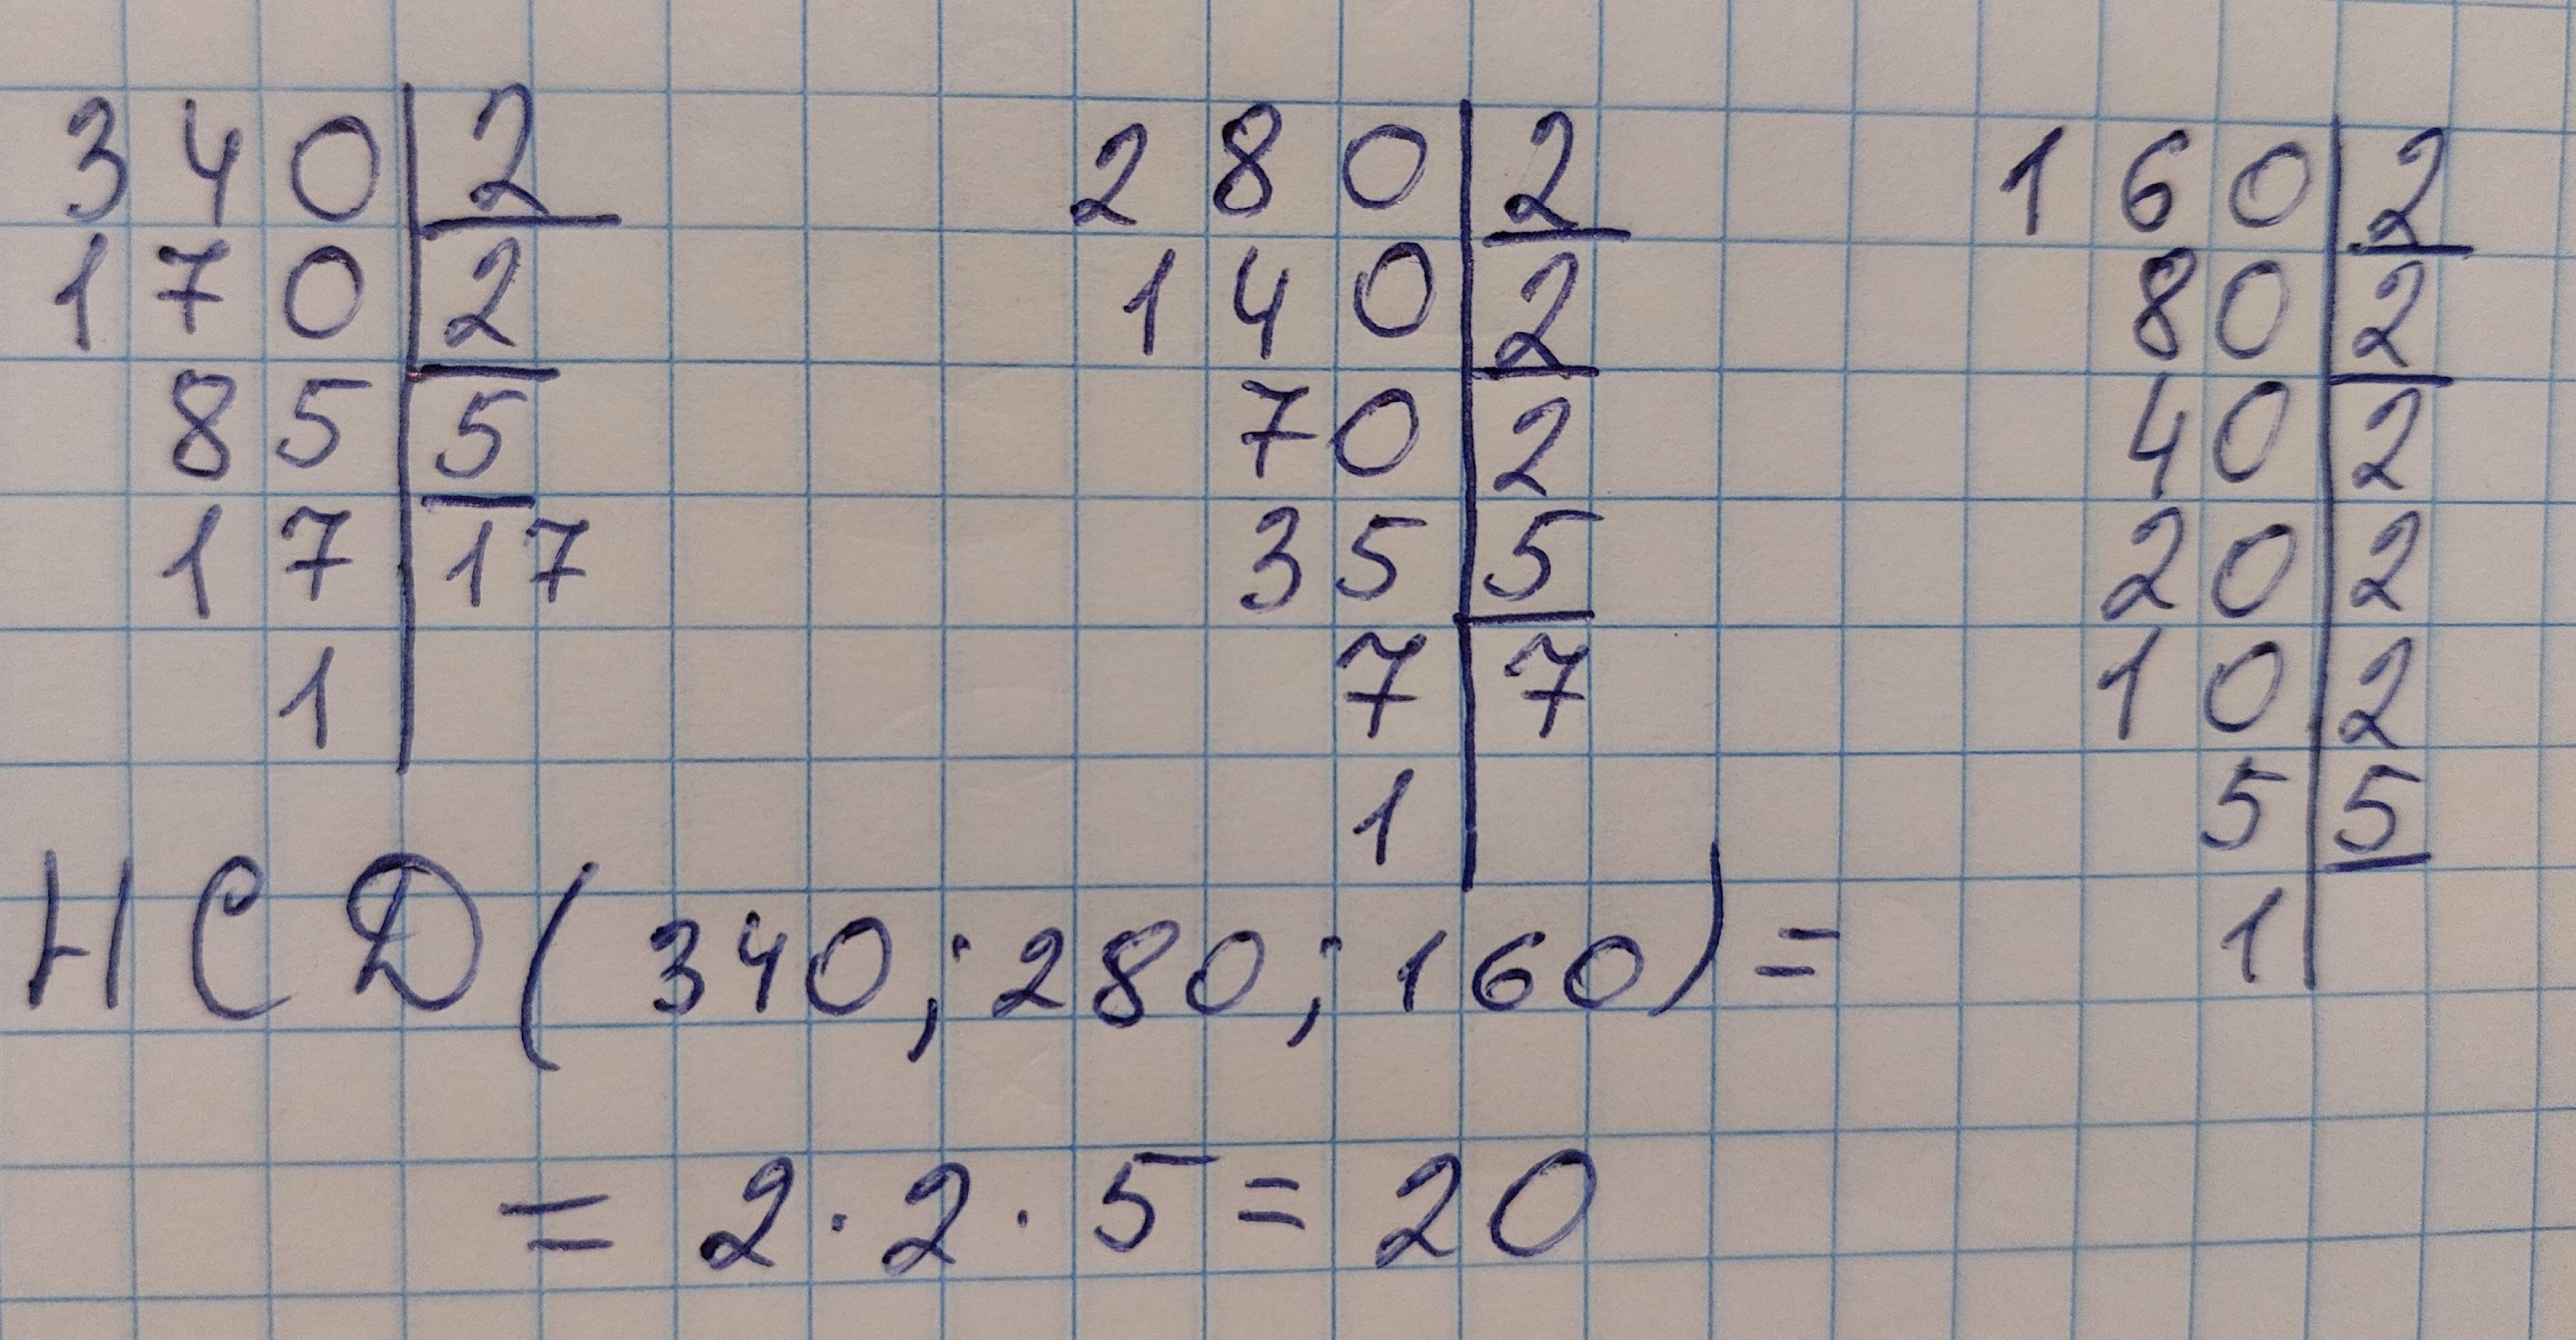 340|2
170|2
85|5
17|17
1|
280|2
140|2
70|2
35|5
7|7
1|
160|2
80|2
40|2
20|2
10|2
5|5
1|
НСД(340;280;160)=
=2·2·5=20